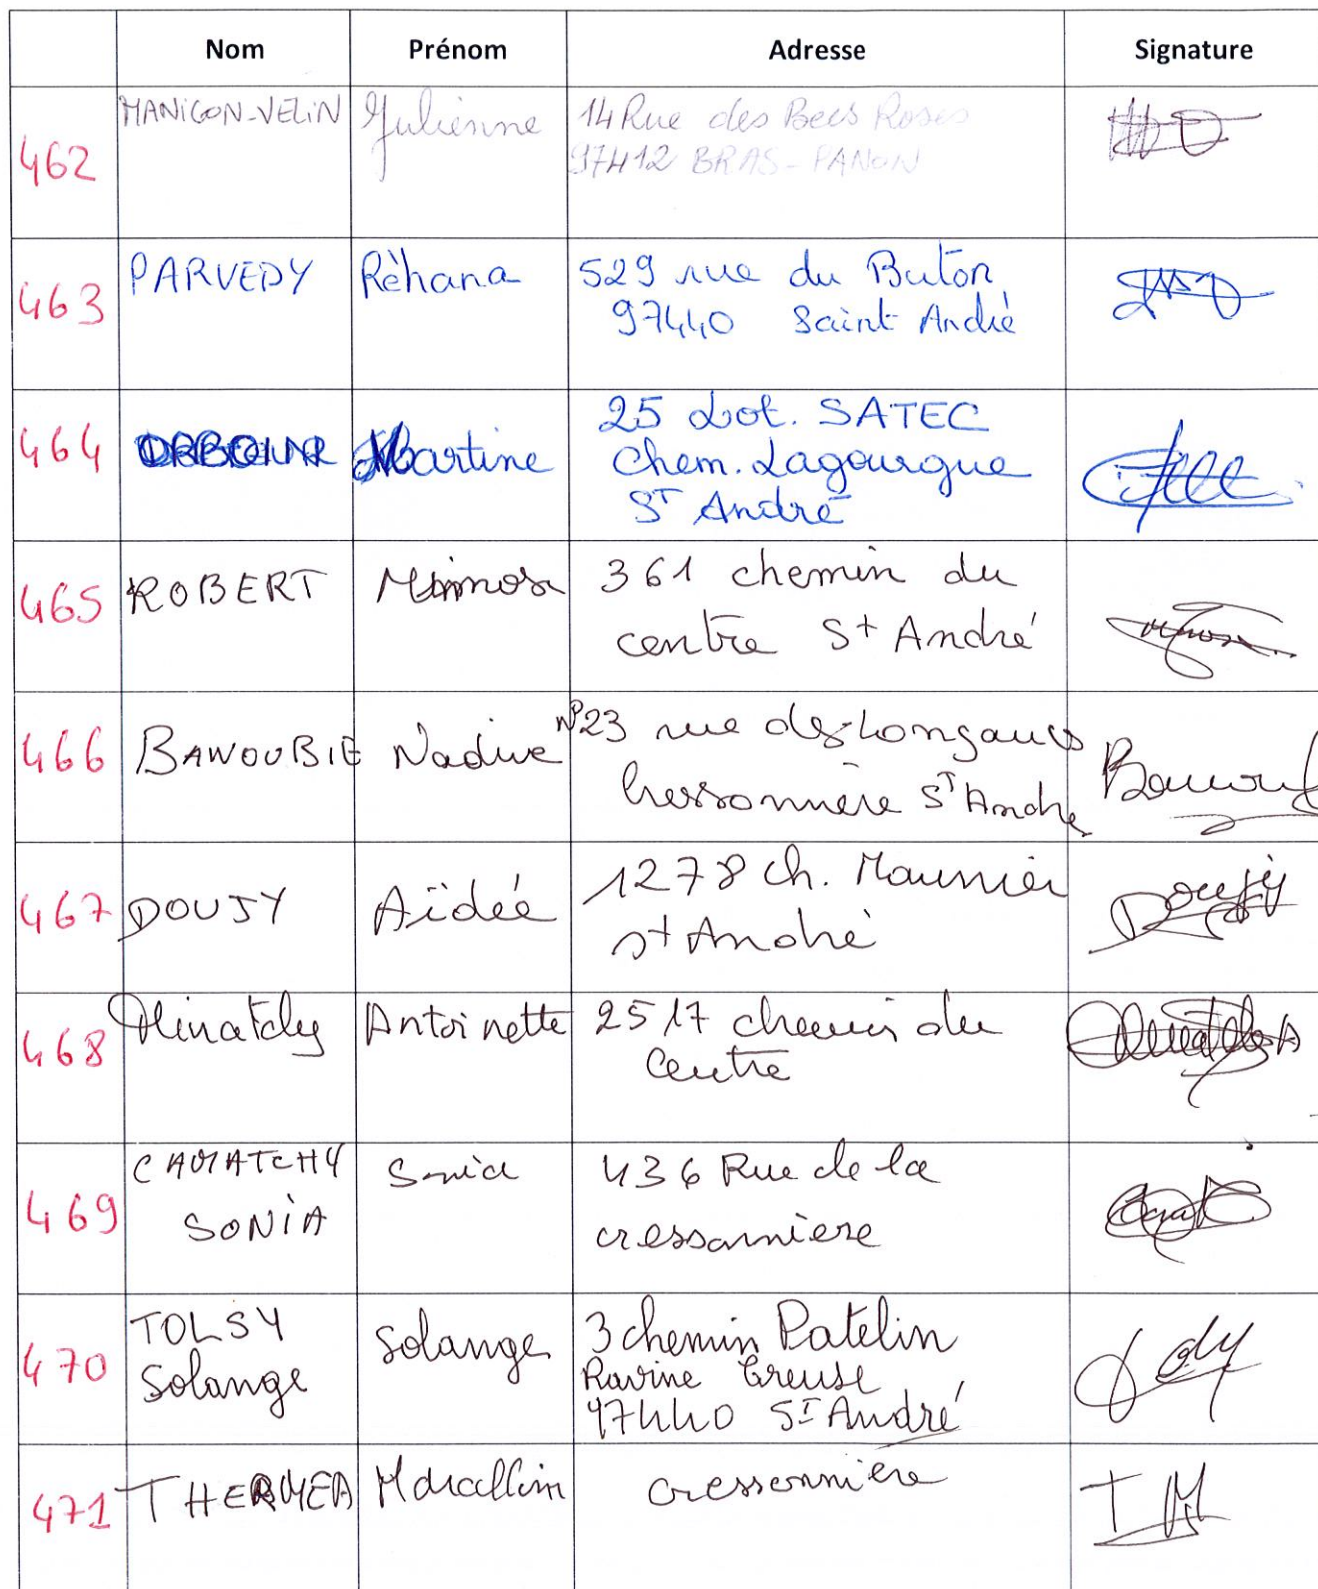 Nom Prénom Adresse Signature
462 MANIGON-VELIN Julienne 14 Rue des Becs Roses
97412 BRAS-PANON
463 PARVEDY Rèhana 529 rue du Buton
97440 Saint André
464 Martine 25 Lot. SATEC
Chem. Lagourgue
ST André
465 ROBERT Mimosa 361 chemin du
centre St André
466 BAWOUBIE Nadine N°23 rue des Longanis
ST André
467 DOUJY Aïdée 1278 ch. Maunier
st André
468 Minatchy Antoinette 2517 chemin du
Centre
469 CAMATCHY Sonia 436 Rue de la
SONIA cressonniere
470 TOLSY Solange 3 chemin Patelin
Solange Ravine Creuse
97440 ST André
471 THERMEA Marcellin cressonnière